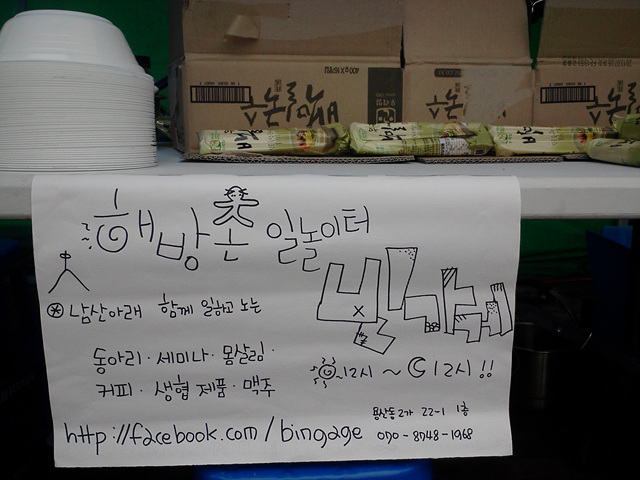 해방촌 일놀이터
빈가게
남산아래 함께 일하고 노는
동아리 · 세미나 · 몸살림 ·
커피 · 생협 제품 · 맥주
12시 ~ 12시 !!
용산동2가 22-1 1층
http://facebook.com/bingage 070-8748-1968